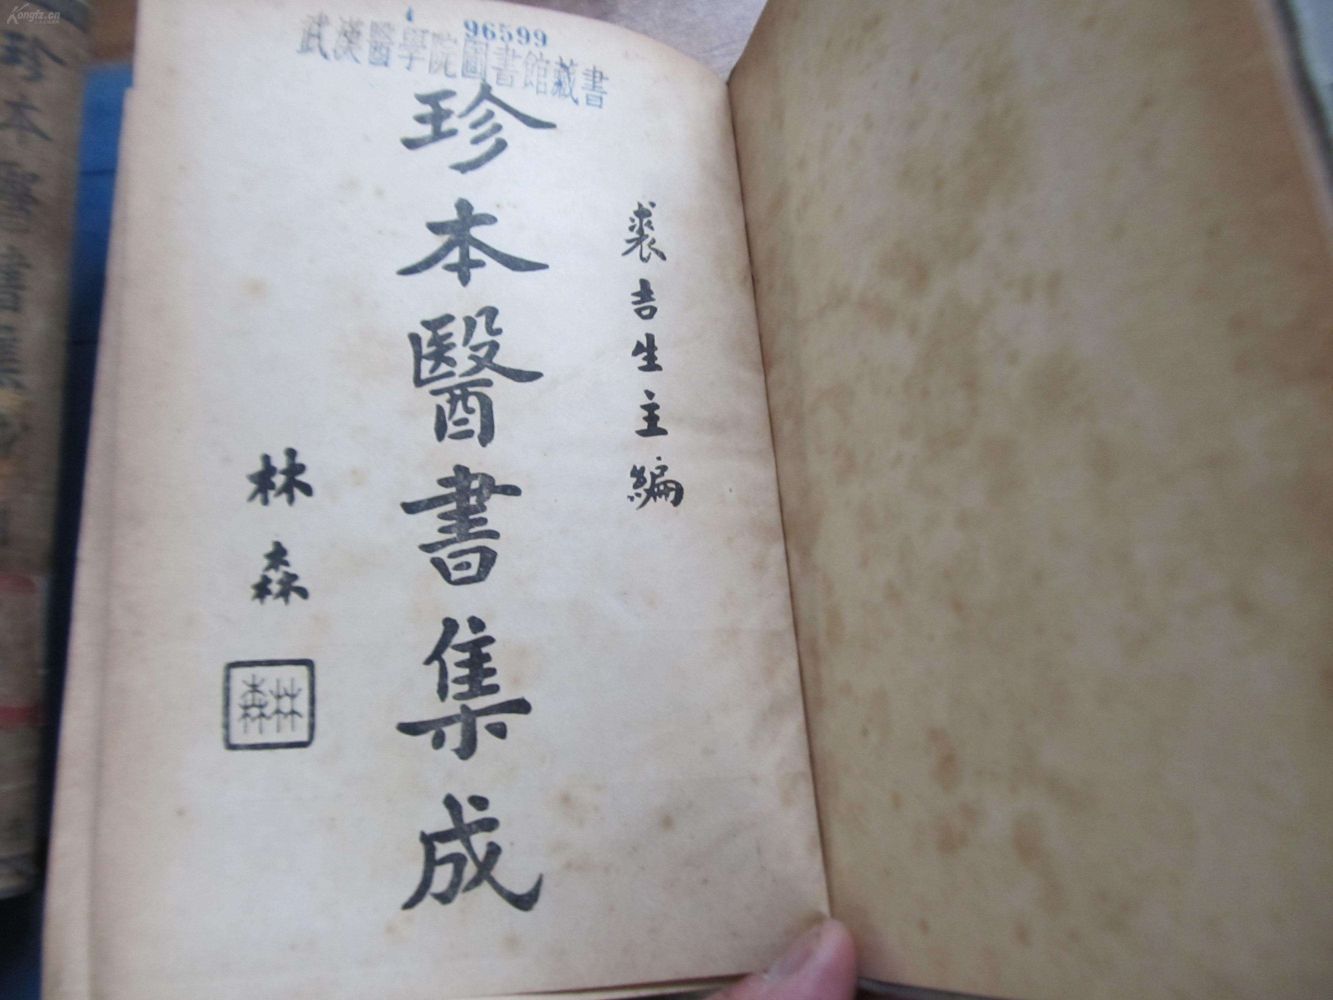 Kongfz.cn
96599
武漢醫學院圖書館藏書
裘吉生主編
珍本醫書集成
林森
林森
珍本醫書集成